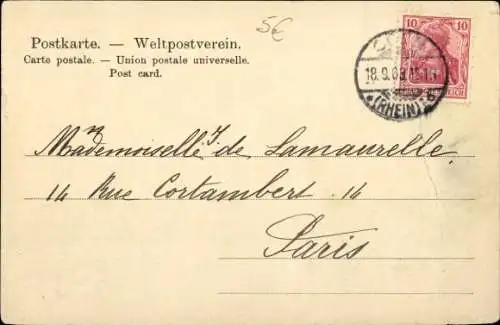 5€
Postkarte. — Weltpostverein.
Carte postale. — Union postale universelle.
Post card.
10 10
18.9.03
(RHEIN)
Mademoiselle J. de Lamaurelle
14 Rue Cortambert. 14
Paris